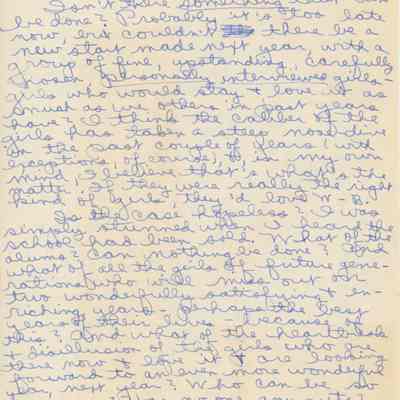 Isn't there something that can
be done? Probably it's too late
now, but couldn't there be a
new start made next year, with a
group of fine, upstanding, carefully
chosen personally interviewed girls -
girls who would stay & love it as
much as we others in past years
have? I think the caliber of the
girls has taken a steep nose-dive
in the past couple of years (with
exceptions, of course), & in my own
mind, I believe that's what's the
matter. If they were really the right
kind of girls, they'd love W-B.
Is the case hopeless? I was
simply stunned when I heard the
school had been sold. What of the
alums? Can nothing be done? And
what of all the girls of future gene-
rations who will miss out on
two wonderfully satisfying & en-
riching years - perhaps the best
years of their lives - because of
this? And what of the heartbreak
& disillusion of the girls who are
there now & love it & are looking
forward to an even more wonderful
year, next year? Who can be so
no one